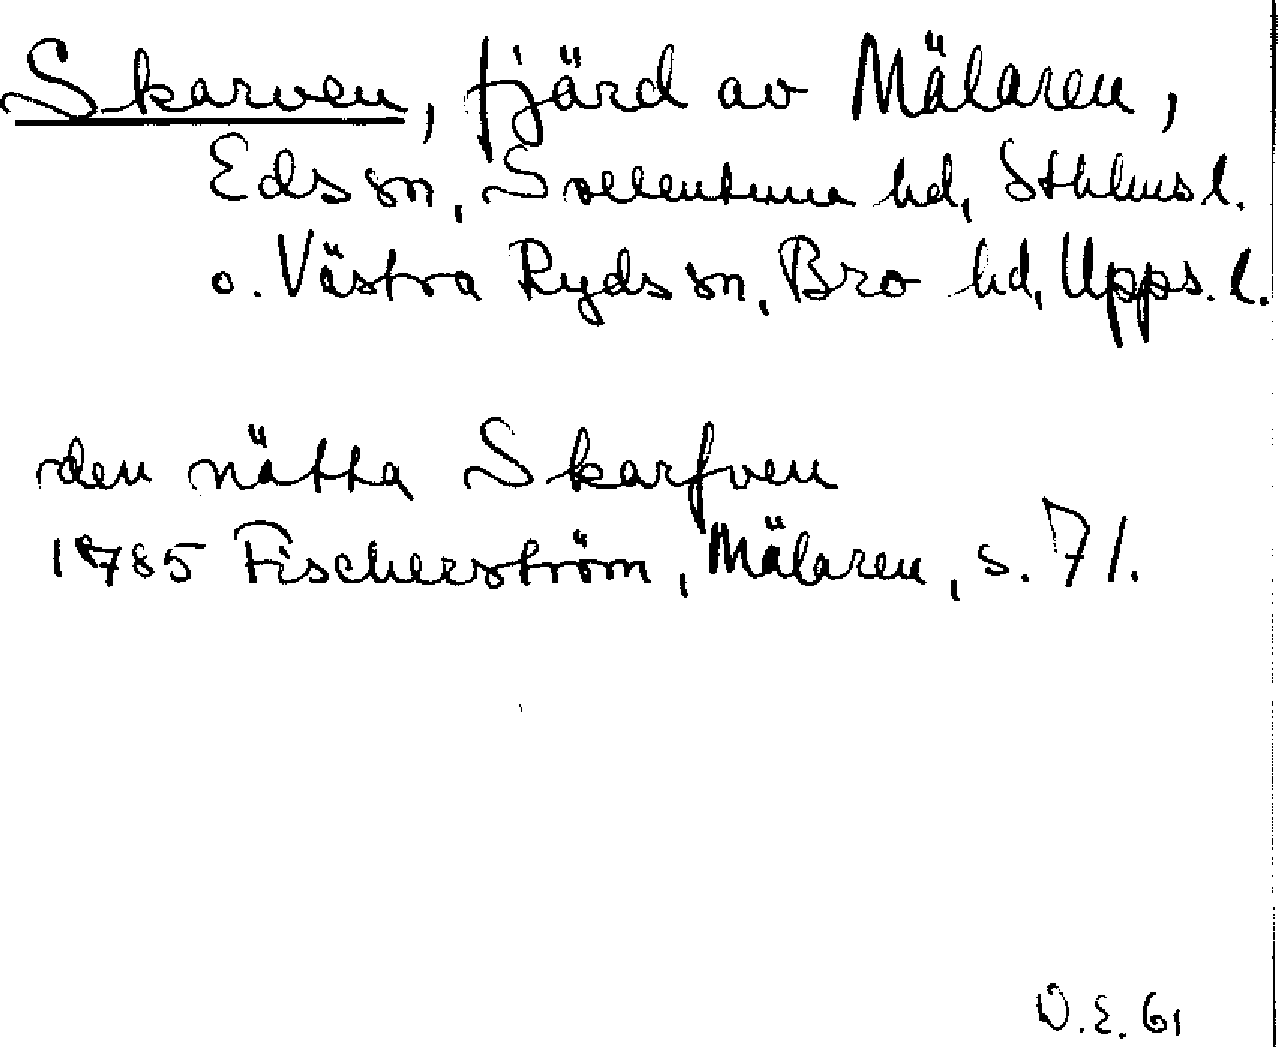 Skarven, fjärd av Mälaren,
Eds sn, Sollentuna hd, Sthlms l.
o. Västra Ryds sn, Bro hd, Upps. l.
den nätta Skarfven
1785 Fischerström, Mälaren, s. 71.
O.E. 61